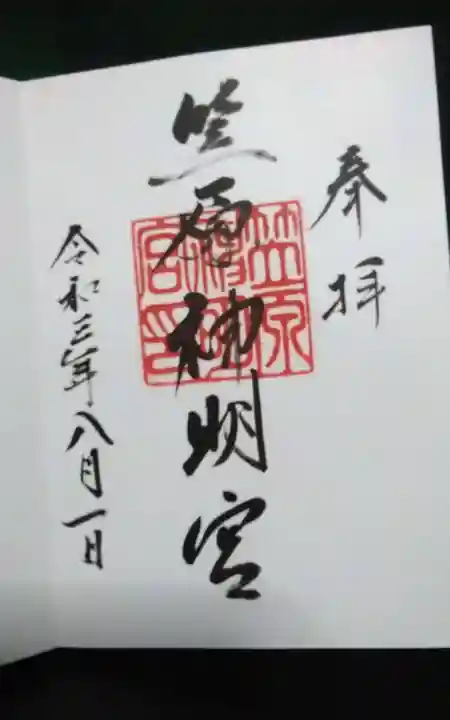 奉拝
笠原神明宮
笠原神明宮印
令和三年八月一日